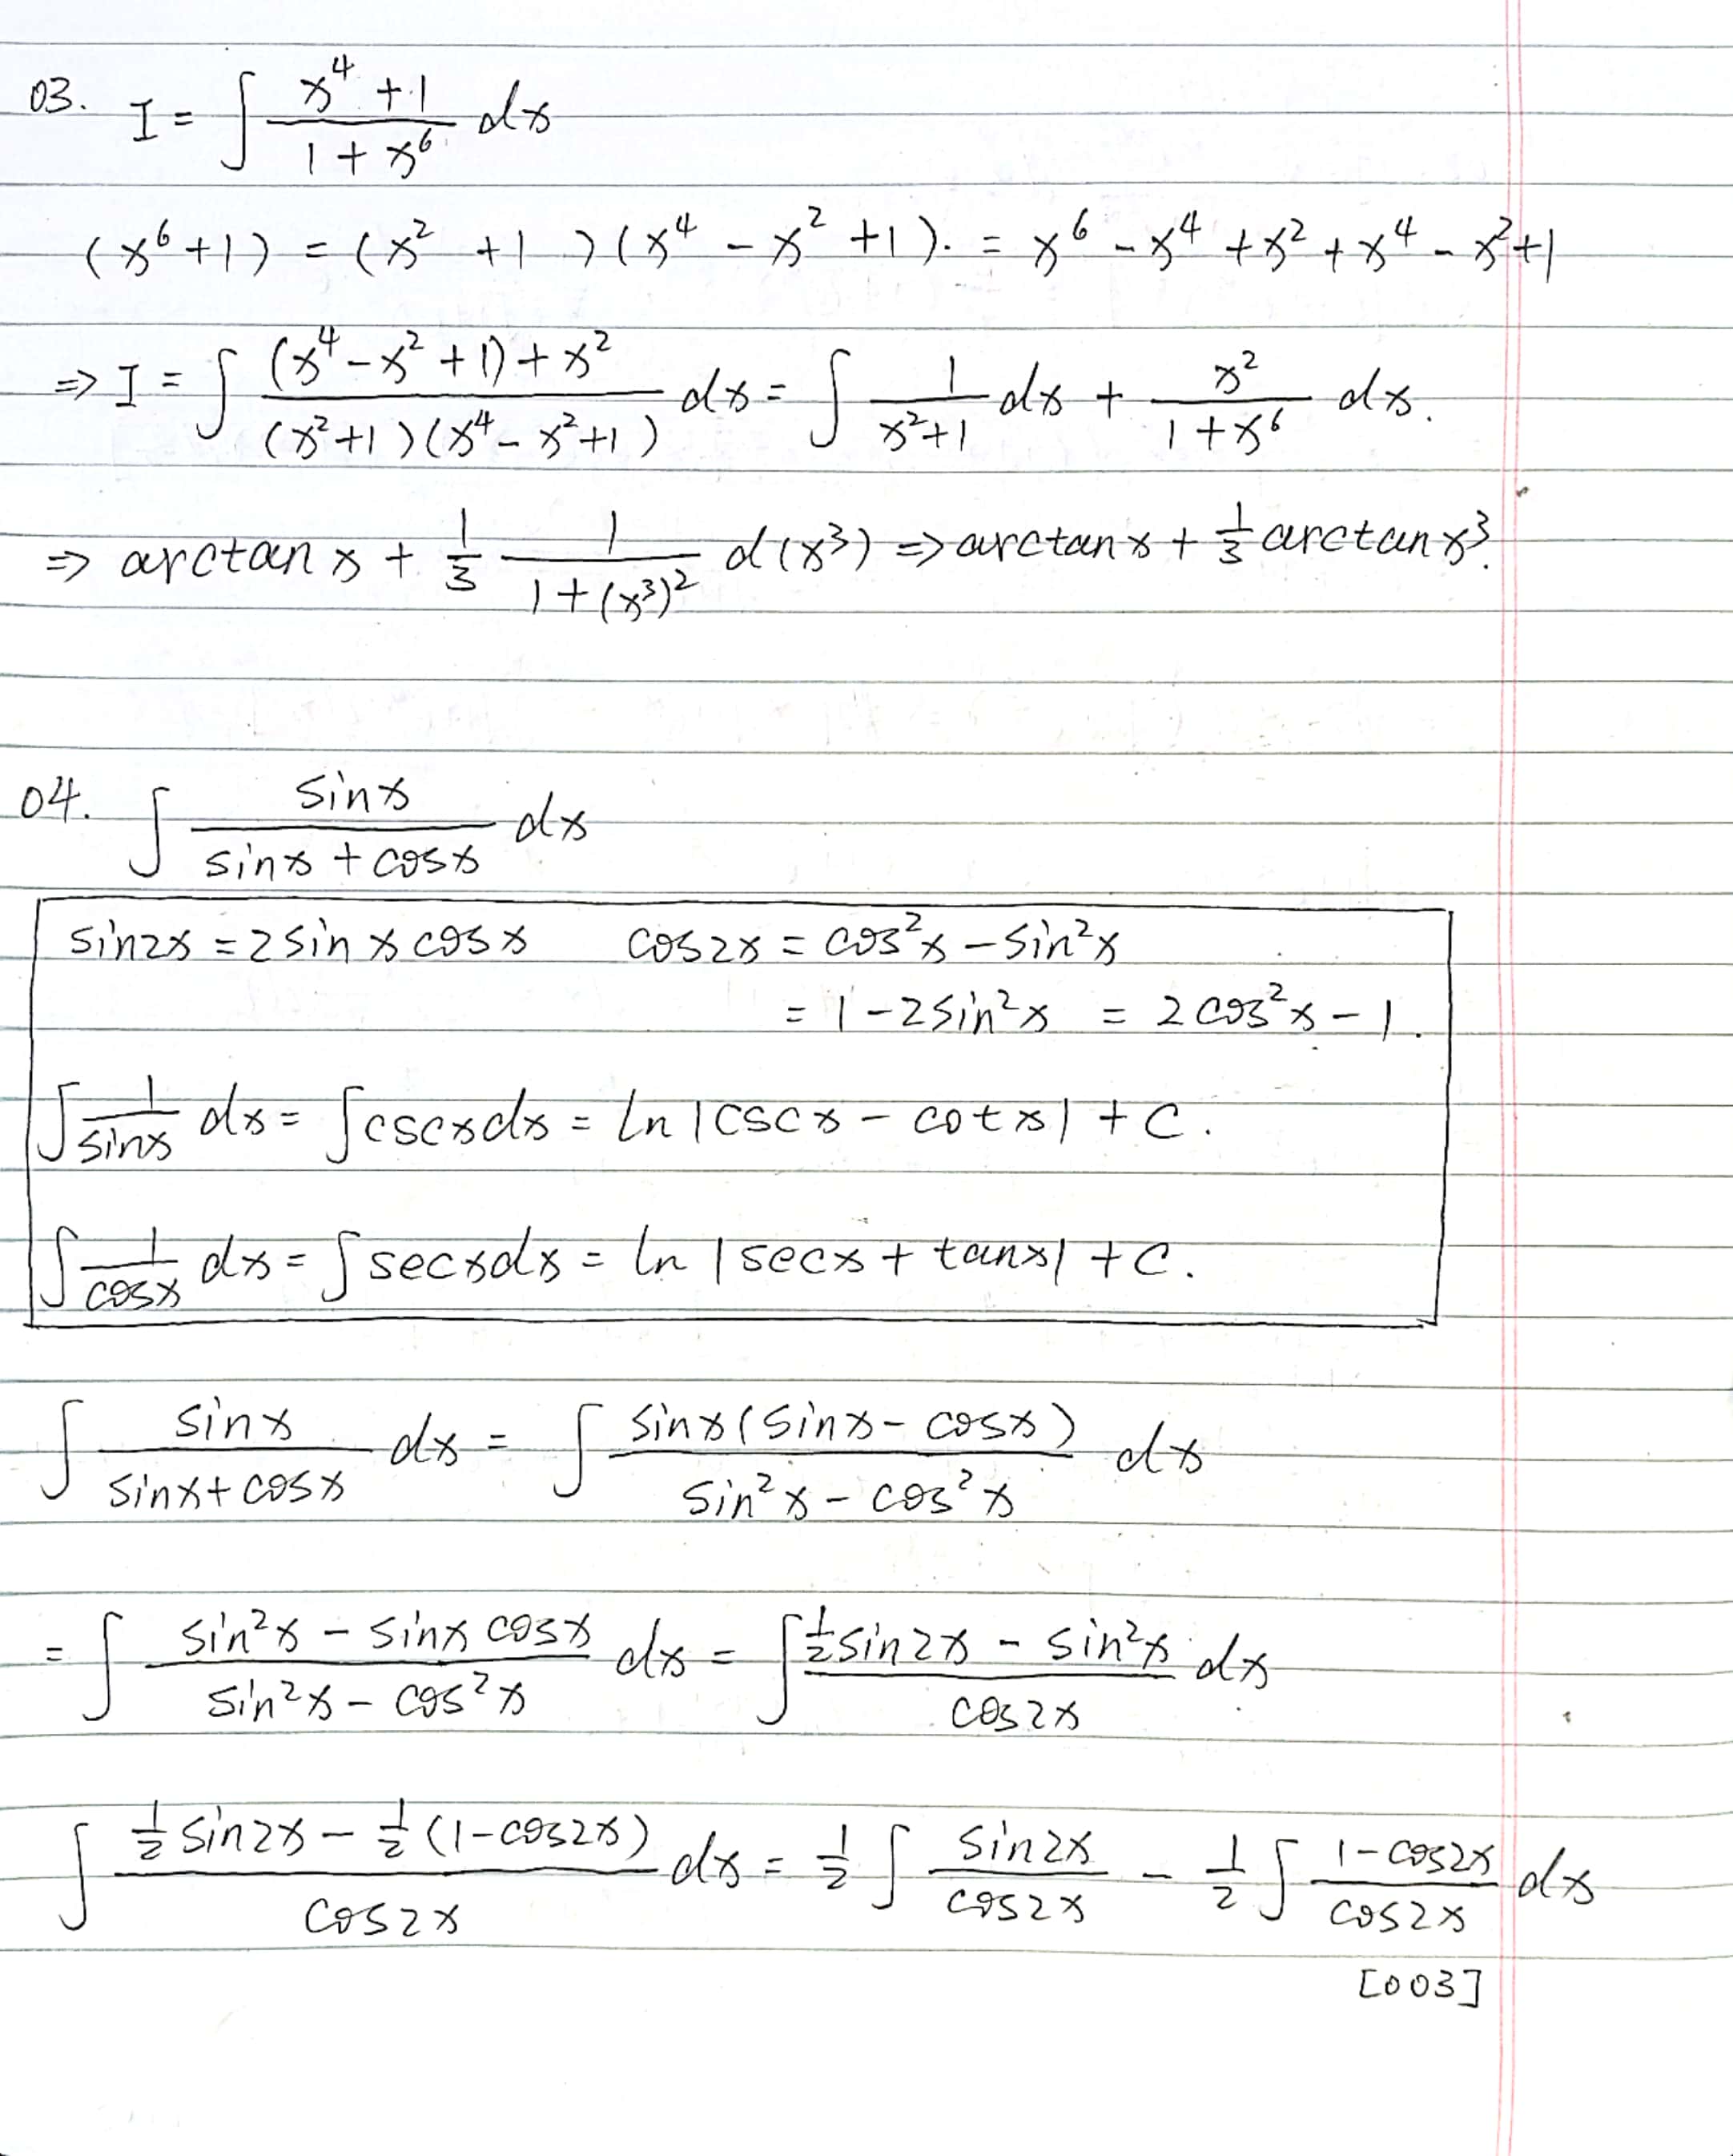 03. I = ∫ (x⁴ + 1)/(1 + x⁶) dx
(x⁶ + 1) = (x² + 1)(x⁴ − x² + 1). = x⁶ − x⁴ + x² + x⁴ − x² + 1
⇒ I = ∫ ((x⁴ − x² + 1) + x²)/((x² + 1)(x⁴ − x² + 1)) dx = ∫ 1/(x² + 1) dx + x²/(1 + x⁶) dx.
⇒ arctan x + 1/3 1/(1 + (x³)²) d(x³) ⇒ arctan x + 1/3 arctan x³.
04. ∫ sinx/(sinx + cosx) dx
sin2x = 2 sin x cos x cos2x = cos²x − sin²x
= 1 − 2sin²x = 2cos²x − 1.
∫ 1/sinx dx = ∫ cscx dx = ln |cscx − cotx| + C.
∫ 1/cosx dx = ∫ secx dx = ln |secx + tanx| + C.
∫ sinx/(sinx + cosx) dx = ∫ sinx(sinx − cosx)/(sin²x − cos²x) dx
= ∫ (sin²x − sinx cosx)/(sin²x − cos²x) dx = ∫ (1/2 sin2x − sin²x)/cos2x dx
∫ (1/2 sin2x − 1/2 (1 − cos2x))/cos2x dx = 1/2 ∫ sin2x/cos2x − 1/2 ∫ (1 − cos2x)/cos2x dx
[003]